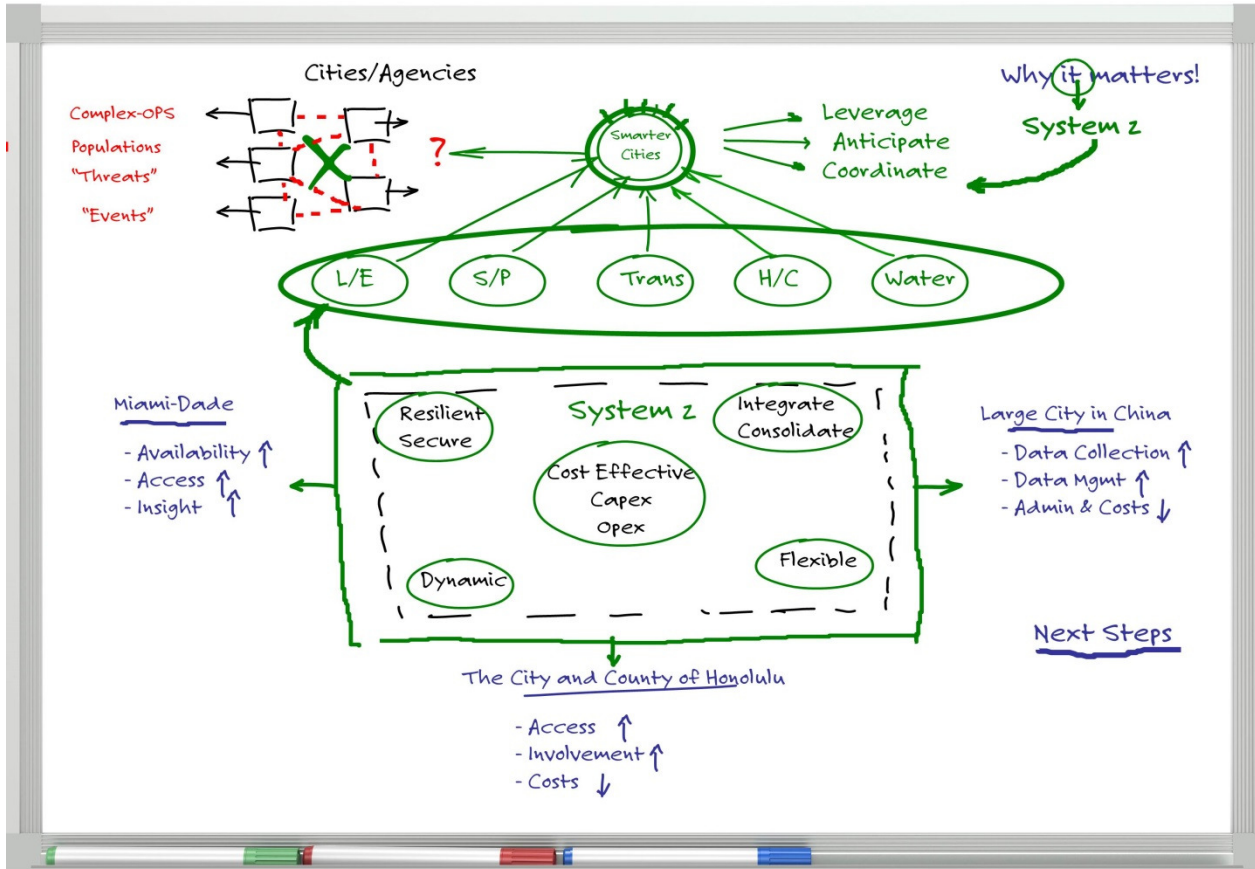 Cities/Agencies
Complex-OPS
Populations
"Threats"
"Events"
?
Smarter
Cities
Leverage
Anticipate
Coordinate
Why it matters!
System z
L/E
S/P
Trans
H/C
Water
Miami-Dade
- Availability ↑
- Access ↑
- Insight ↑
Resilient
Secure
System z
Integrate
Consolidate
Cost Effective
Capex
Opex
Dynamic
Flexible
Large City in China
- Data Collection ↑
- Data Mgmt ↑
- Admin & Costs ↓
Next Steps
The City and County of Honolulu
- Access ↑
- Involvement ↑
- Costs ↓